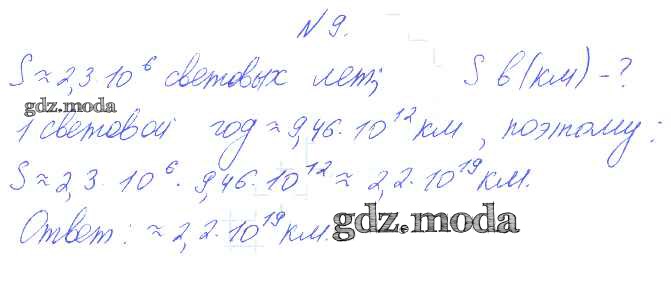 N 9.
S ≈ 2,3·10⁶ световых лет; S в (км) - ?
gdz.moda
1 световой год ≈ 9,46·10¹² км, поэтому:
S ≈ 2,3·10⁶·9,46·10¹² ≈ 2,2·10¹⁹ км.
Ответ: ≈ 2,2·10¹⁹ км.
gdz.moda